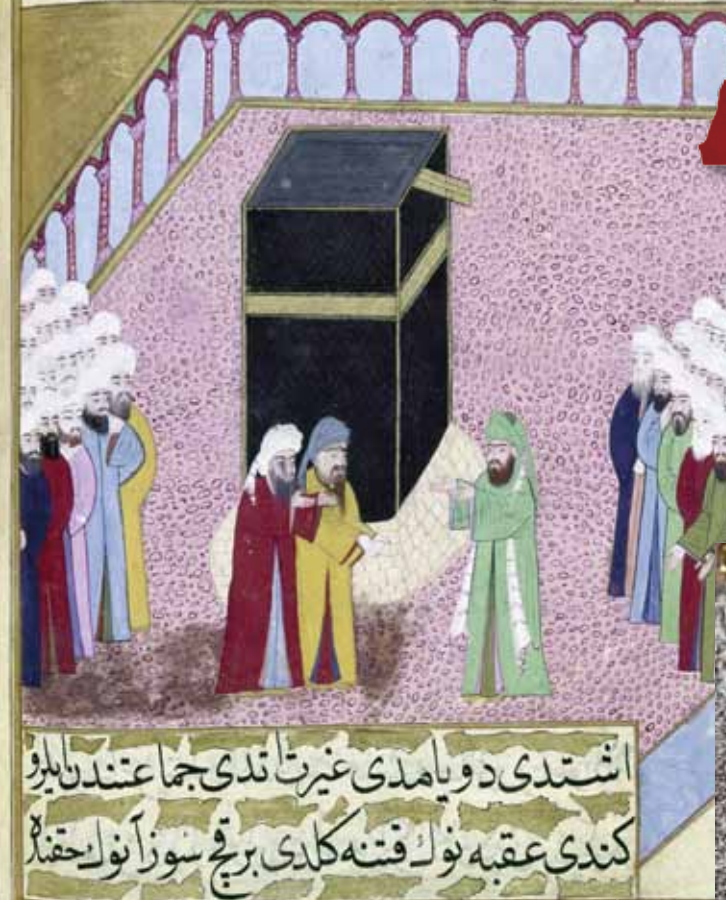 اشتدی دویامدی غیرت اتدی جماعتندن ایلرو
کندی عقبه نوك قتنه کلدی برقچ سوز آنوك حقنده